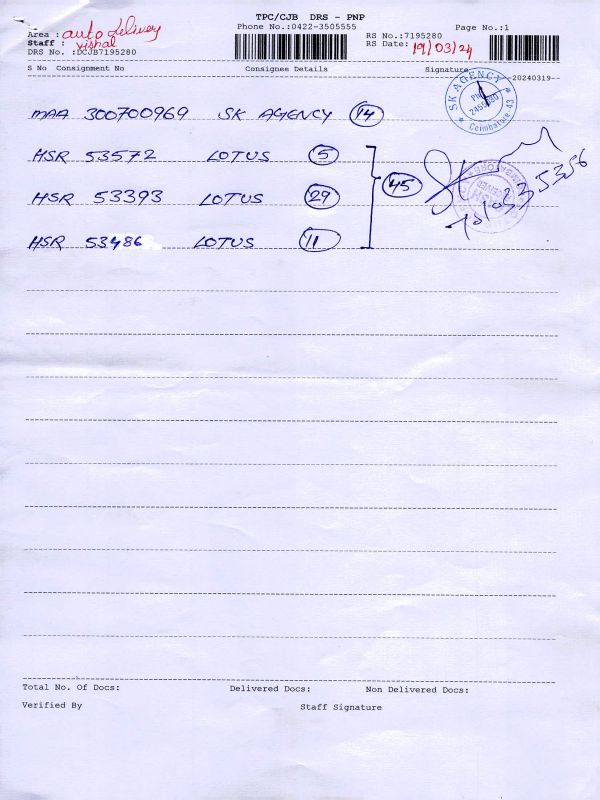 TPC/CJB DRS - PNP
Phone No.:0422-3505555
Page No.:1
Area : auto Delivery
Staff : vishal
DRS No. :DCJB7195280
RS No.:7195280
RS Date: 19/03/24
S No Consignment No Consignee Details Signature
--20240319--
SK AGENCY
Coimbatore 43
MAA 300700969 SK AGENCY 14
HSR 53572 LOTUS 5
HSR 53393 LOTUS 29
HSR 53486 LOTUS 11
45
Total No. Of Docs: Delivered Docs: Non Delivered Docs:
Verified By Staff Signature